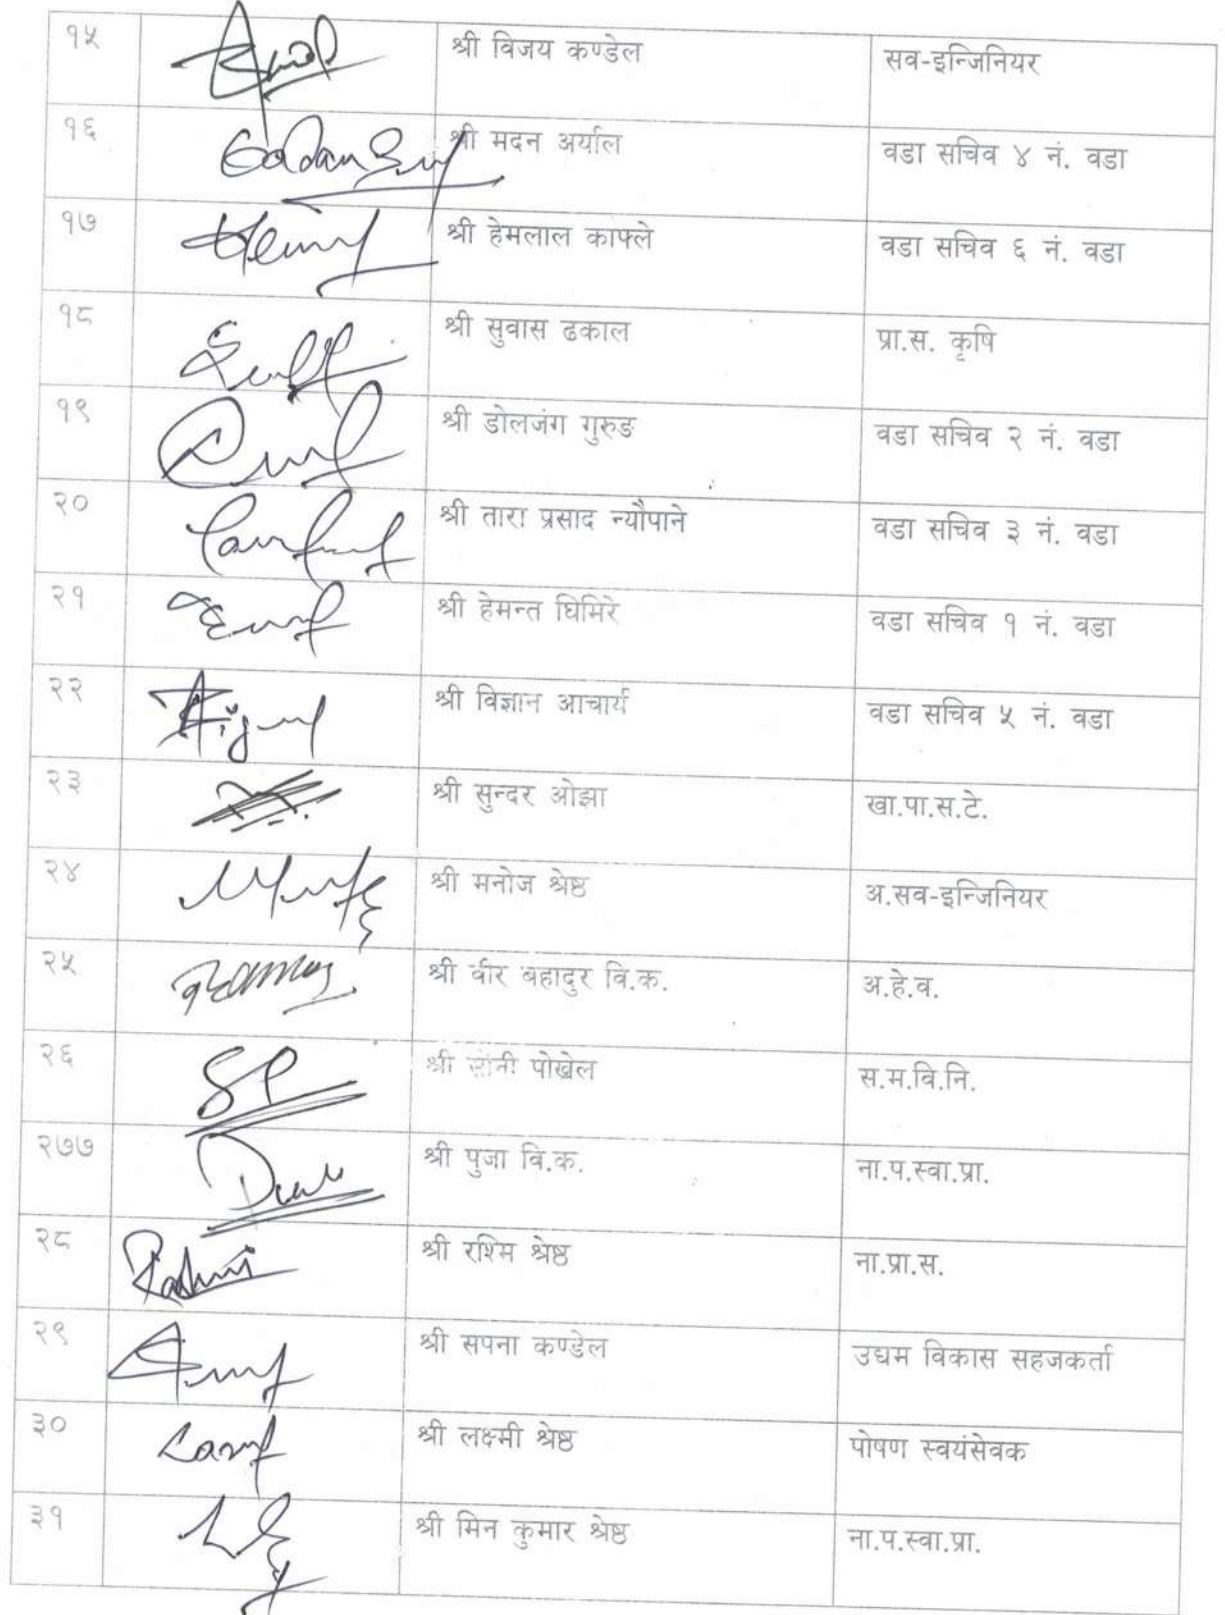 १५ श्री विजय कण्डेल सव-इन्जिनियर
१६ श्री मदन अर्याल वडा सचिव ४ नं. वडा
१७ श्री हेमलाल काफ्ले वडा सचिव ६ नं. वडा
१८ श्री सुवास ढकाल प्रा.स. कृषि
१९ श्री डोलजंग गुरुङ वडा सचिव २ नं. वडा
२० श्री तारा प्रसाद न्यौपाने वडा सचिव ३ नं. वडा
२१ श्री हेमन्त घिमिरे वडा सचिव १ नं. वडा
२२ श्री विज्ञान आचार्य वडा सचिव ५ नं. वडा
२३ श्री सुन्दर ओझा खा.पा.स.टे.
२४ श्री मनोज श्रेष्ठ अ.सव-इन्जिनियर
२५ श्री वीर बहादुर वि.क. अ.हे.व.
२६ श्री पोखेल स.म.वि.नि.
२७७ श्री पुजा वि.क. ना.प.स्वा.प्रा.
२८ Rashmi श्री रश्मि श्रेष्ठ ना.प्रा.स.
२९ श्री सपना कण्डेल उद्यम विकास सहजकर्ता
३० श्री लक्ष्मी श्रेष्ठ पोषण स्वयंसेवक
३१ श्री मिन कुमार श्रेष्ठ ना.प.स्वा.प्रा.